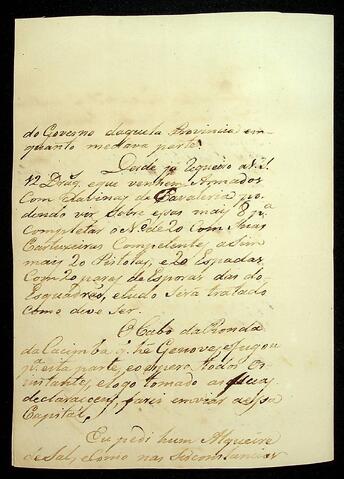 do Governo daquela Provincia em
quanto me dava parte.
Desde já requeiro a V.
12 Drag. e que venhem Armados
Com Clabinas de Cavaleria po
dendo vir sobre essas mais 8 p.ª
Completar o N.º de 20 Com Suas
Cartuxeiras Competentes, asim
mais 20 Pistolas, e 20 Espadas
Com 20 pares de Esporas das do
Esquadrão, e tudo Será tratado
como deve ser.
O Cabo da Ronda
da Cacimba q. he Genoves fugou
p.ª esta parte, eo espero todos os
instantes, e logo tomado as suas
declaracoens, farei enviar a essa
Capital,
Eu pedi hum Alqueire
de Sal, como nas